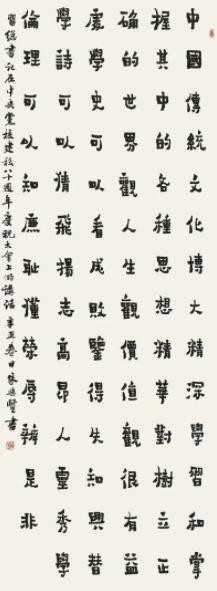 中國傳統文化博大精深學習和掌
握其中的各種思想精華對樹立正
確的世界觀人生觀價值觀很有益
處學史可以看成敗鑒得失知興替
學詩可以情飛揚志高昂人靈秀學
倫理可以知廉恥懂榮辱辨是非
習總書記在中央黨校建校八十週年慶祝大會上的講話 辛丑春日 書